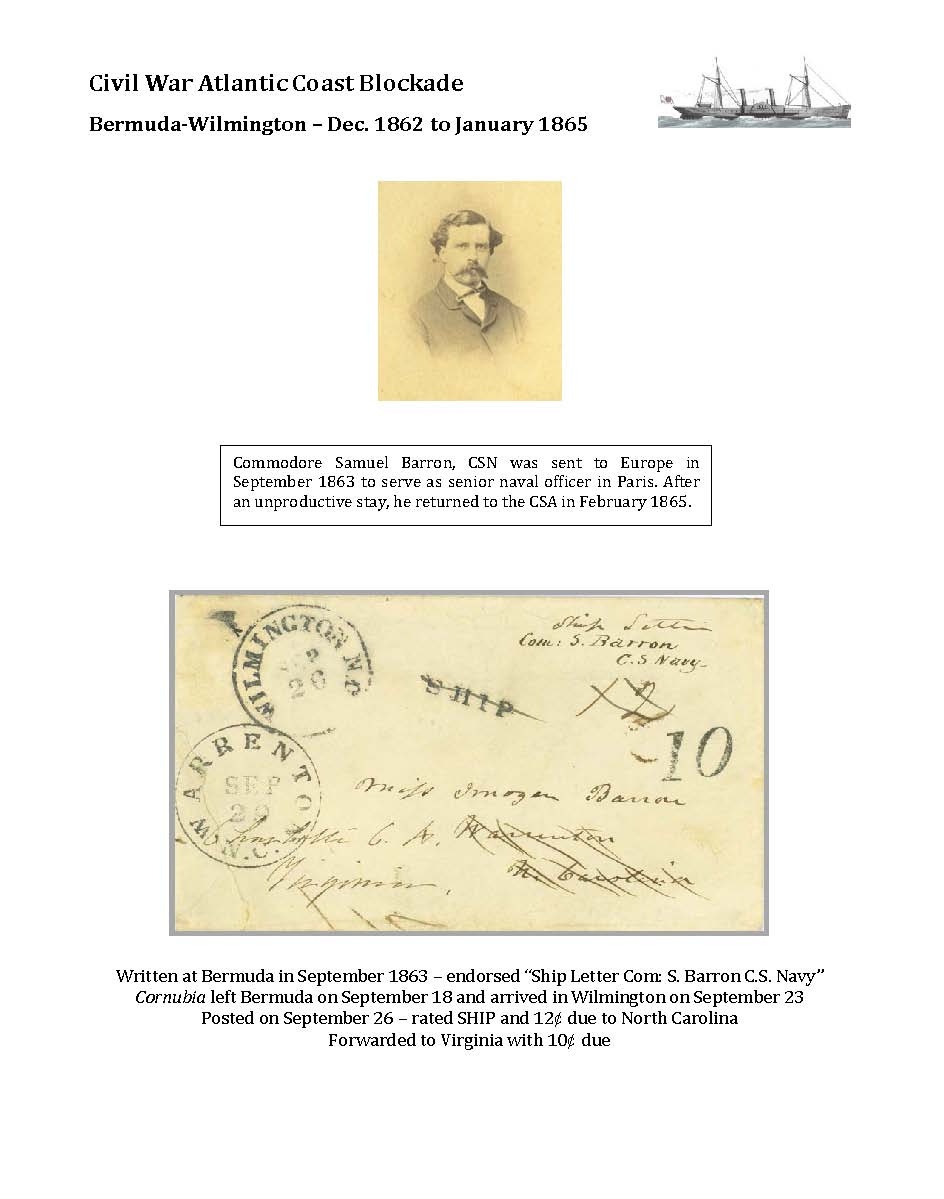 Civil War Atlantic Coast Blockade
Bermuda-Wilmington – Dec. 1862 to January 1865
Commodore Samuel Barron, CSN was sent to Europe in
September 1863 to serve as senior naval officer in Paris. After
an unproductive stay, he returned to the CSA in February 1865.
WILMINGTON N.C
20
Ship Letter
Com: S. Barron
C.S Navy
SHIP
12
10
WARRENTON
SEP
N.C.
Miss Imogen Barron
C. H. Warrenton
Virginia, No. Carolina
Written at Bermuda in September 1863 – endorsed “Ship Letter Com: S. Barron C.S. Navy”
Cornubia left Bermuda on September 18 and arrived in Wilmington on September 23
Posted on September 26 – rated SHIP and 12¢ due to North Carolina
Forwarded to Virginia with 10¢ due